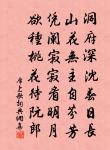 洞府深沈春日長
山花無主自芬芳
凭闌寂寂看明月
欲種桃花待阮郎